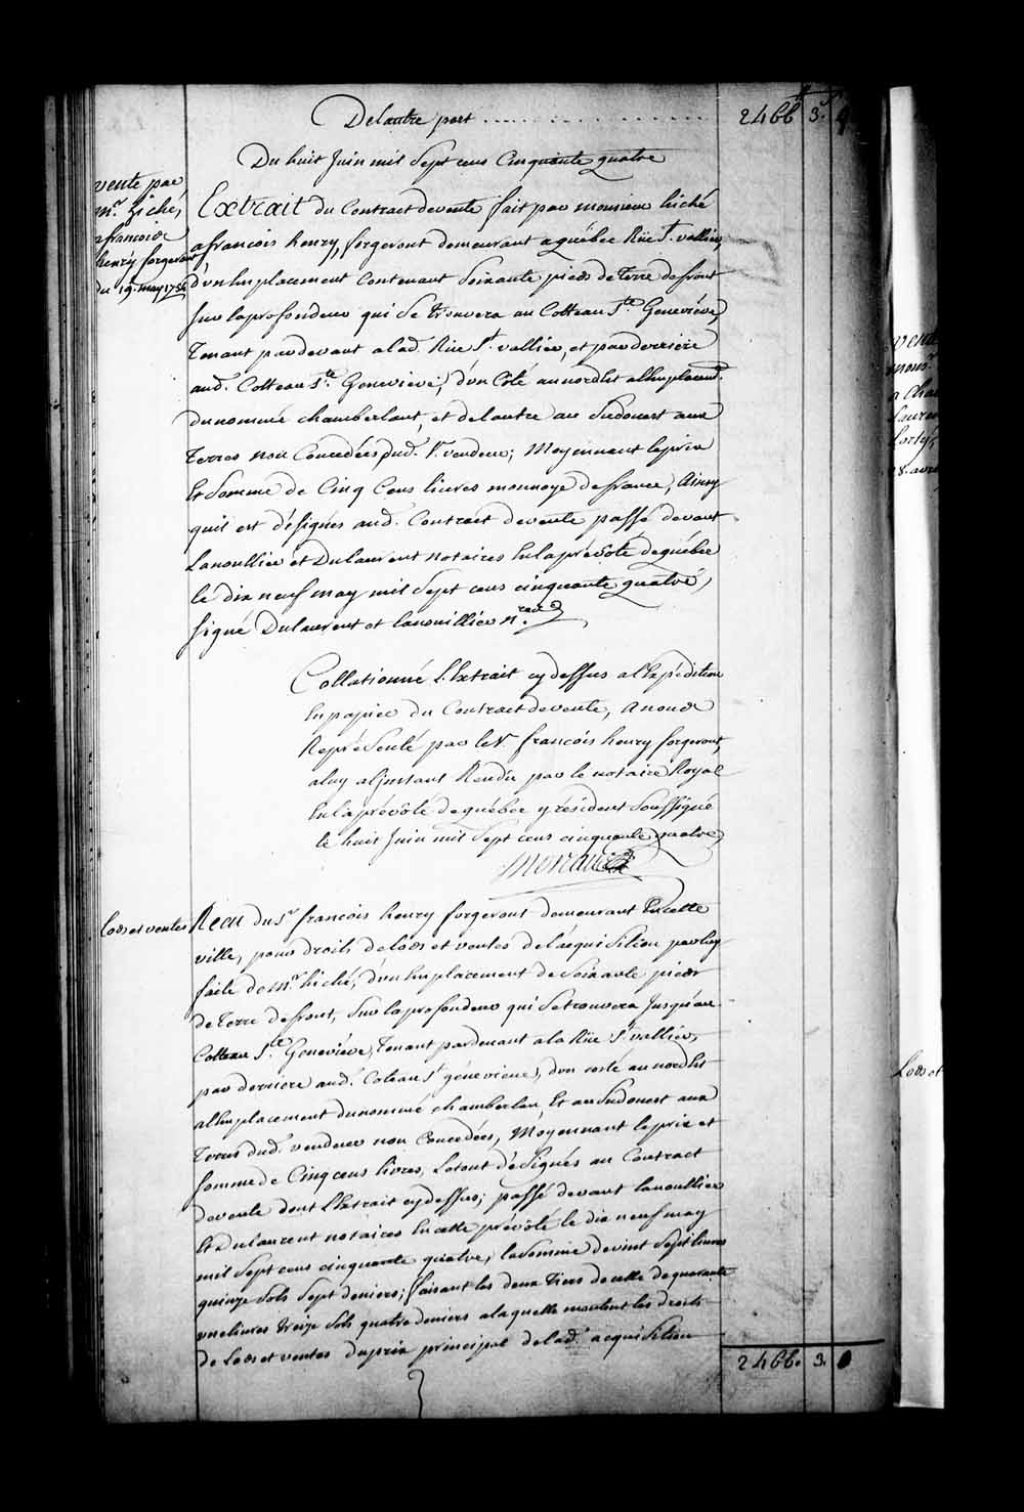 Delautre part . . . . . . . . . . . . 2466 3. 9
Du huit Juin mil Sept cens Cinquante quatre
vente par
mr. hiché,
a francois
henry forgeront
du 19. may 1754
Extrait du Contract devente fait par monsieur hiché
a francois henry, forgeront demeurant a québec Rüe St. vallier,
d'un Emplacement Contenant Soixante pieds de Terre defront
Sur laprofondeur qui Se trouvera au Cotteau Ste. Geneviéve,
Tenant pardevant alad. Rüe St. vallier, et parderriere
aud. Cotteau Ste. Genevieve, d'un Coté aunordest alEmplacemt.
dunommé chamberlant, et delautre au Sudouest aux
Terres non Concedées dud. Sr. vendeur; Moyennant leprix
Et Somme de Cinq Cens livres monnoye defrance, Ainsy
quil est désignés aud. Contract devente passé devant
Lanoullier et Dulaurent notaires Enlaprévôté dequébec
le dix neuf may mil Sept cens cinquante quatre,
signé Dulaurent et lanouillier nres.
Collationné l'Extrait cy dessus al'Expédition
En papier du Contract devente, A nous
Représenté par le Sr. francois henry forgeront,
aluy alinstant Rendu par le notaire Royal
Enlaprévôté dequébec y résident Soussigné
le huit Juin mil Sept cens cinquante quatre,
Moreau
lods et ventes
Recu du Sr. francois henry forgeront demeurant En cette
ville, pour droits delods et ventes del'acquisition parluy
faite de Mr. hiché, d'un Emplacement de Soixante pieds
de Terre defront, Sur laprofondeur qui Setrouvera Jusqu'au
Cotteau Ste. Geneviéve, Tenant pardevant a la Rüe St. vallier,
par derriere aud. Coteau Ste. généviéve, d'un costé au nordest
alEmplacement dunommé chamberlan, Et au Sudouest aux
Terres dud. vendeur non Concedées, Moyennant leprix et
somme de Cinq cens livres, Letout désignés au Contract
devente dont l'Extrait cy dessus; passé devant lanoullier
Et Dulaurent notaires En cette prévôté le dix neuf may
mil Sept cens cinquante quatre, la Somme de vint Sept livres
quinze Sols Sept deniers; faisant les deux tiers de celle dequarante
une livres treize Sols quatre deniers a laquelle montent les droits
de Lods et ventes duprix principal de lad. acquisition
2466. 3.
vente
mons.
a Cha
Lauren
8. avr
Lods et